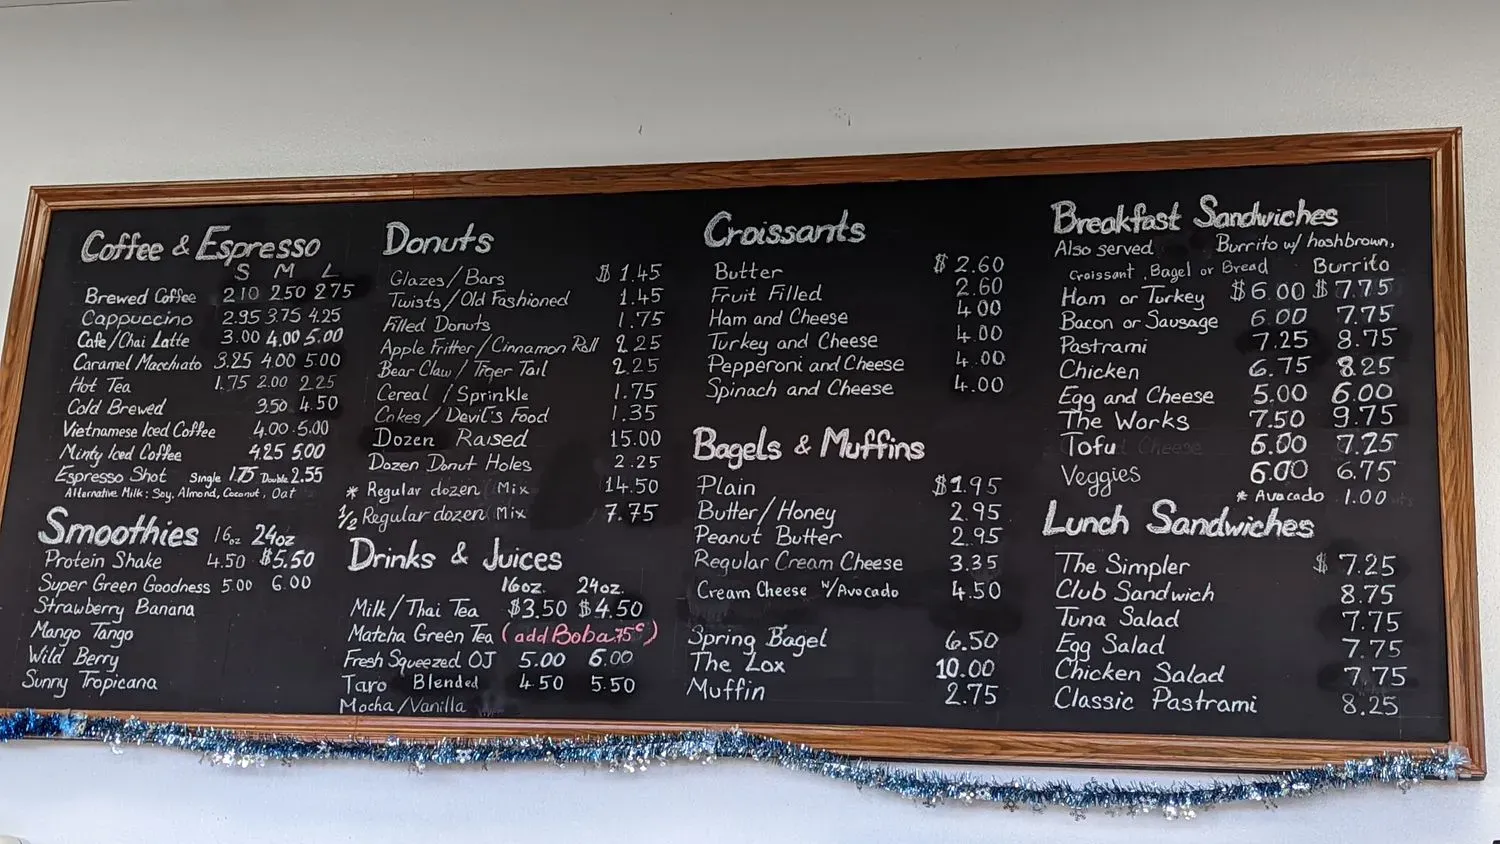 Coffee & Espresso
S M L
Brewed Coffee 2.10 2.50 2.75
Cappuccino 2.95 3.75 4.25
Cafe/Chai Latte 3.00 4.00 5.00
Caramel Macchiato 3.25 4.00 5.00
Hot Tea 1.75 2.00 2.25
Cold Brewed 3.50 4.50
Vietnamese Iced Coffee 4.00 5.00
Minty Iced Coffee 4.25 5.00
Espresso Shot Single 1.75 Double 2.55
Alternative Milk: Soy, Almond, Coconut, Oat
Smoothies 16oz 24oz
Protein Shake 4.50 $5.50
Super Green Goodness 5.00 6.00
Strawberry Banana
Mango Tango
Wild Berry
Sunny Tropicana
Donuts
Glazes/Bars $ 1.45
Twists/Old Fashioned 1.45
Filled Donuts 1.75
Apple Fritter/Cinnamon Roll 2.25
Bear Claw/Tiger Tail 2.25
Cereal/Sprinkle 1.75
Cakes/Devil's Food 1.35
Dozen Raised 15.00
Dozen Donut Holes 2.25
* Regular dozen Mix 14.50
1/2 Regular dozen Mix 7.75
Drinks & Juices
16oz. 24oz.
Milk/Thai Tea $3.50 $4.50
Matcha Green Tea (add Boba .75¢)
Fresh Squeezed OJ 5.00 6.00
Taro Blended 4.50 5.50
Mocha/Vanilla
Croissants
Butter $ 2.60
Fruit Filled 2.60
Ham and Cheese 4.00
Turkey and Cheese 4.00
Pepperoni and Cheese 4.00
Spinach and Cheese 4.00
Bagels & Muffins
Plain $1.95
Butter/Honey 2.95
Peanut Butter 2.95
Regular Cream Cheese 3.35
Cream Cheese w/Avocado 4.50
Spring Bagel 6.50
The Lox 10.00
Muffin 2.75
Breakfast Sandwiches
Also served Burrito w/ hashbrown,
Croissant, Bagel or Bread Burrito
Ham or Turkey $6.00 $7.75
Bacon or Sausage 6.00 7.75
Pastrami 7.25 8.75
Chicken 6.75 8.25
Egg and Cheese 5.00 6.00
The Works 7.50 9.75
Tofu 6.00 7.25
Veggies 6.00 6.75
* Avocado 1.00
Lunch Sandwiches
The Simpler $ 7.25
Club Sandwich 8.75
Tuna Salad 7.75
Egg Salad 7.75
Chicken Salad 7.75
Classic Pastrami 8.25